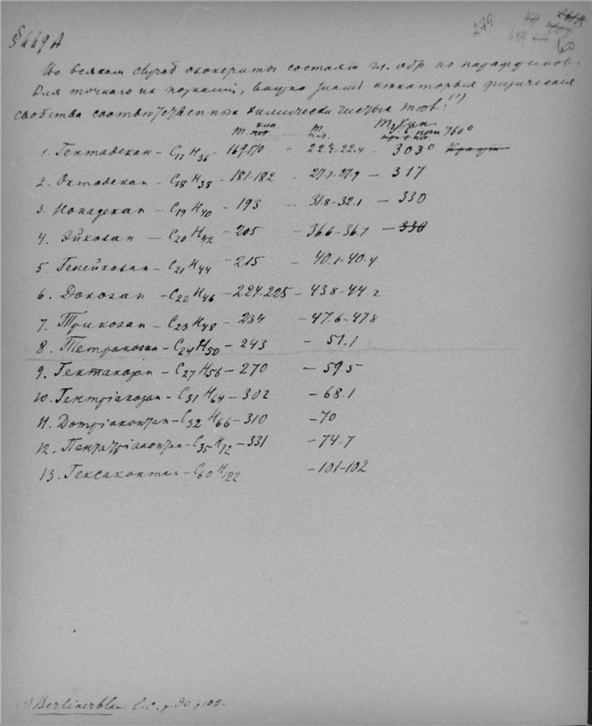 279
60
§669 А
Во всяком случае озокериты состоят гл. обр. из парафинов.
Для точного их познания, важно знание некоторых физических
свойств соответственных химически чистых тел: (1)
Т. кип. Т. пл. Т. кип. при 760°
1. Гептадекан – C17H36 – 169-170 – 22.3-22.4 – 303°
2. Октадекан – C18H38 – 181-182 – 27.7-27.9 – 317
3. Нонадекан – C19H40 – 193 – 31.8-32.1 – 330
4. Эйкозан – C20H42 – 205 – 36.6-36.7 – 330
5. Генейкозан – C21H44 – 215 – 40.1-40.4
6. Докозан – C22H46 – 224-225 – 43.8-44.2
7. Трикозан – C23H48 – 234 – 47.6-47.8
8. Тетракозан – C24H50 – 243 – 51.1
9. Гептакозан – C27H56 – 270 – 59.5
10. Гентріаконтан – C31H64 – 302 – 68.1
11. Дотріаконтан – C32H66 – 310 – 70
12. Пентатріаконтан – C35H72 – 331 – 74.7
13. Гексаконтан – C60H122 – 101-102
1) Berlinerblau l.c., p. 90, 102.